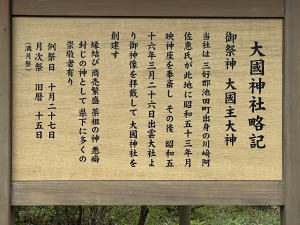 大國神社略記
御祭神 大國主大神
当社は 三好郡池田町出身の川崎阿
佐恵氏が此地に昭和五十三年月
映神座を奉斎し その後 昭和五
十六年三月二十六日出雲大社よ
り御神像を拝戴して 大國神社を
創建す
縁結び 商売繁盛 薬祖の神 悪病
封じの神として 県下に多くの
崇敬者有り
例祭日 十月二十七日
月次祭 旧暦 十五日
(満月祭)